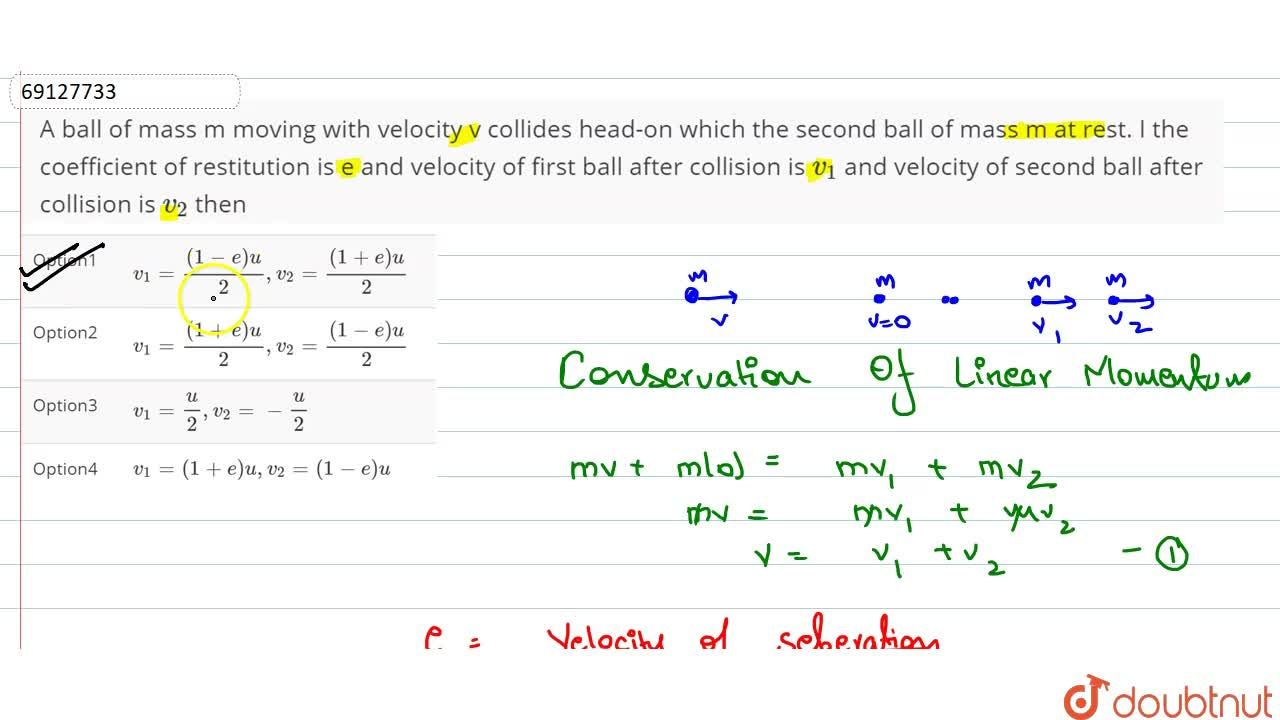 69127733
A ball of mass m moving with velocity v collides head-on which the second ball of mass m at rest. I the
coefficient of restitution is e and velocity of first ball after collision is v₁ and velocity of second ball after
collision is v₂ then
Option1 v₁ = (1 − e)u/2, v₂ = (1 + e)u/2
Option2 v₁ = (1 + e)u/2, v₂ = (1 − e)u/2
Option3 v₁ = u/2, v₂ = − u/2
Option4 v₁ = (1 + e)u, v₂ = (1 − e)u
m m m m
v v=0 v₁ v₂
Conservation Of Linear Momentum
mv + m(0) = mv₁ + mv₂
mv = mv₁ + mv₂
v = v₁ + v₂ − ①
e = Velocity of seberation
doubtnut